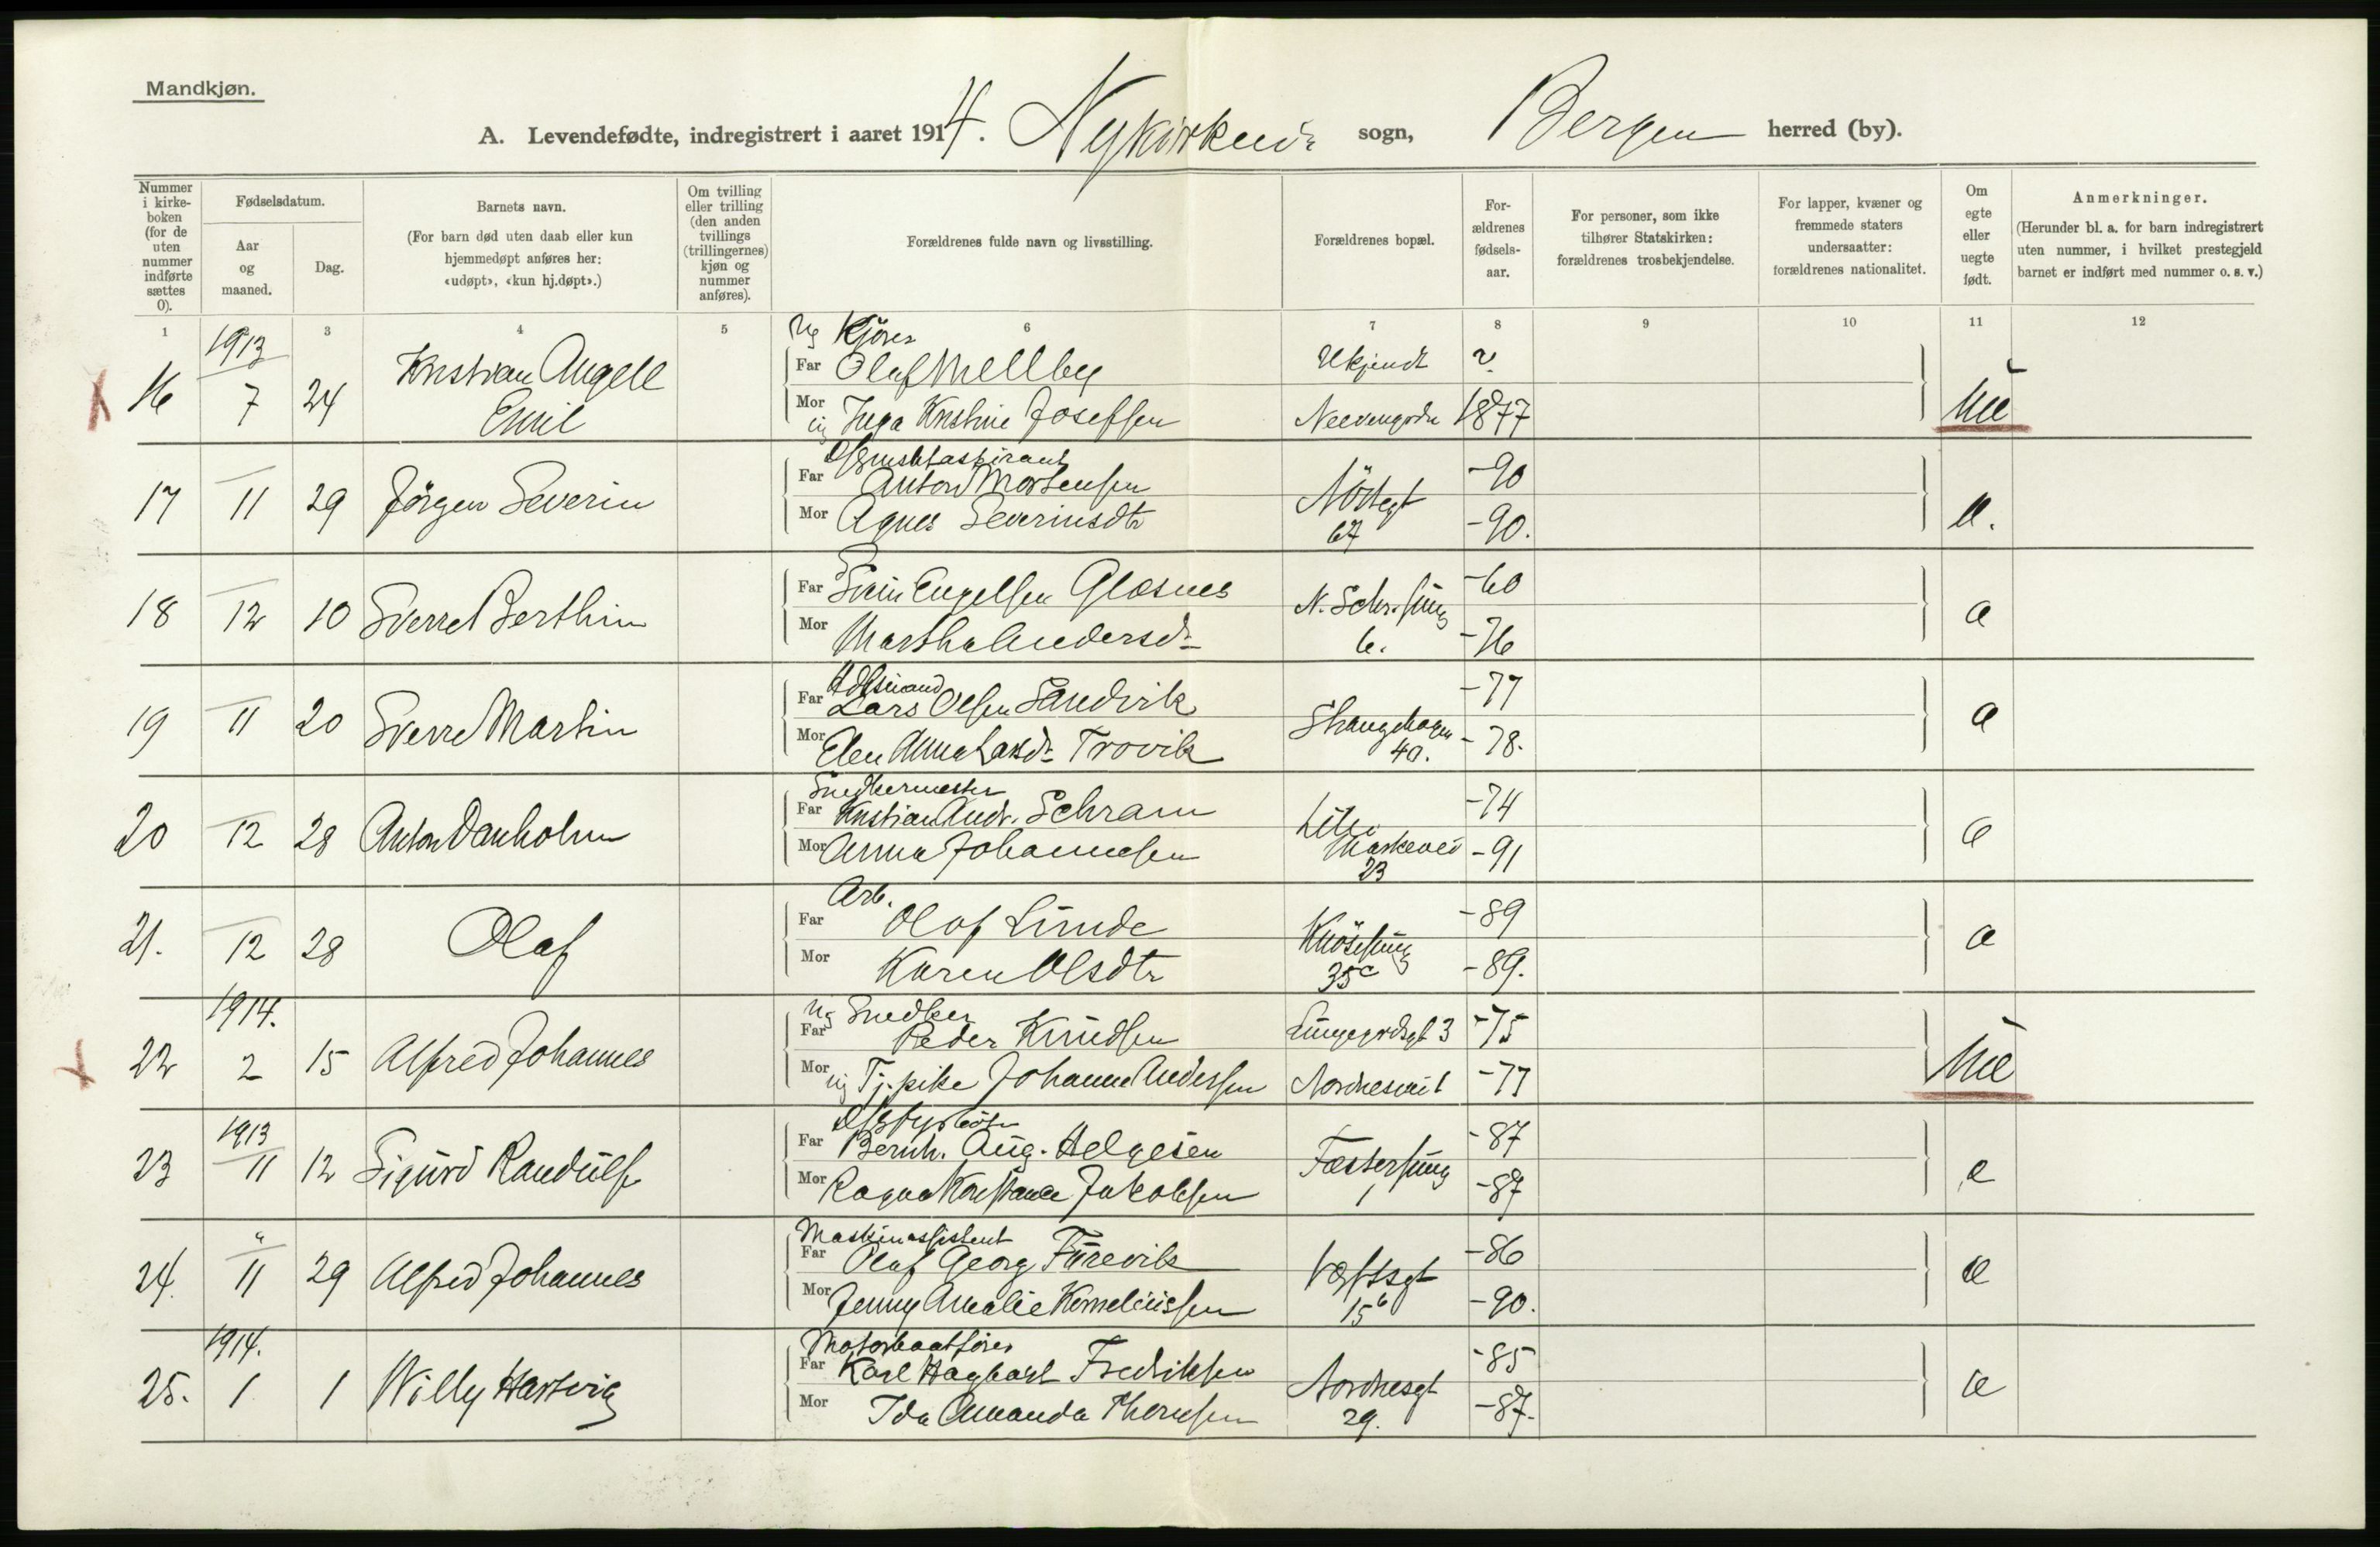 Mandkjøn.
A. Levendefødte, indregistrert i aaret 1914. Nykirkens sogn, Bergen herred (by).
Nummer i kirkeboken (for de uten nummer indførte sættes 0).
Fødselsdatum.
Aar og maaned.
Dag.
Barnets navn.
(For barn død uten daab eller kun hjemmedøpt anføres her: «udøpt», «kun hj.døpt».)
Om tvilling eller trilling (den anden tvillings (trillingernes) kjøn og nummer anføres).
Forældrenes fulde navn og livsstilling.
Forældrenes bopæl.
Forældrenes fødselsaar.
For personer, som ikke tilhører Statskirken: forældrenes trosbekjendelse.
For lapper, kvæner og fremmede staters undersaatter: forældrenes nationalitet.
Om egte eller uegte født.
Anmerkninger.
(Herunder bl. a. for barn indregistrert uten nummer, i hvilket prestegjeld barnet er indført med nummer o. s. v.)
1 3 4 5 6 7 8 9 10 11 12
16 1913 7 24 Kristian Angell Emil
Ug Kjører
Far Olaf Mellby Ukjendt ?
Mor ug Inga Kristine Josefsen 1877
Ue
17 11 29 Jörgen Severin
Far Anton Mortensen Nöstegt 67 -90
Mor Agnes Severinsdtr -90.
e.
18 12 10 Sverre Berthin
Far Svein Engelsen Glæsnes N. Schr.smug 6. -60
Mor Martha Andersdr -76
e
19 11 20 Sverre Martin
Far Lars Olsen Sandvik Strangehagen 40. -77
Mor Elen Anna Larsdr Trovik -78.
e
20 12 28 Anton Danholm
Snedkermester
Far Kristian Andr. Schram Lille Markevei 23 -74
Mor Anna Johannesen -91
e
21. 12 28 Olaf
Arb.
Far Olaf Lunde Knösesmug 35c -89
Mor Karen Olsdtr -89.
e
22 1914. 2 15 Alfred Johannes
Ug Snedker
Far Peder Knudsen Lungegrdsgt 3 -75
Mor ug Tj.pike Johanne Andersen Nordnesvei 1 -77
Ue
23 1913 11 12 Sigurd Randulf
Far Bernh. Aug. Helgesen Fæstersmug 1 -87
Mor Ragna Konstance Jakobsen -87
e
24. " 11 29 Alfred Johannes
Maskinassistent
Far Olaf Georg Furevik Verftsgt 15b -86
Mor Jenny Amalie Korneliussen -90.
e
25. 1914. 1 1 Willy Hartvig
Motorbaatförer
Far Karl Hagbart Fredriksen Nordnesgt 29. -85
Mor Ida Amanda Thomsen -87.
e